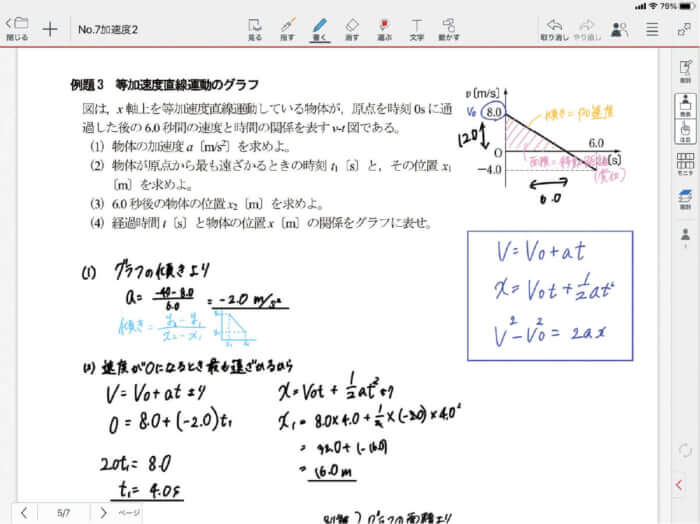 79%
閉じる
No.7加速度2
見る 指す 書く 消す 選ぶ 文字 動かす
取り消し やり直し
例題3 等加速度直線運動のグラフ
図は,x軸上を等加速度直線運動している物体が,原点を時刻0sに通
過した後の6.0秒間の速度と時間の関係を表すv-t図である。
(1) 物体の加速度a〔m/s²〕を求めよ。
(2) 物体が原点から最も遠ざかるときの時刻t₁〔s〕と,その位置x₁
〔m〕を求めよ。
(3) 6.0秒後の物体の位置x₂〔m〕を求めよ。
(4) 経過時間t〔s〕と物体の位置x〔m〕の関係をグラフに表せ。
v[m/s]
V₀ 8.0
傾き=加速度
12.0
6.0
O
[s]
面積=移動距離
(変位)
-4.0
6.0
V=V₀+at
x=V₀t+1/2at²
V²-V₀²=2ax
(1) グラフの傾きより
a= -4.0-8.0/6.0 = -2.0 m/s²
傾き= y₂-y₁/x₂-x₁
(2) 速度が0になるとき最も遠ざかるから
V=V₀+atより
0=8.0+(-2.0)t₁
2.0t₁=8.0
t₁=4.0s
x=V₀t+1/2at²より
x₁=8.0×4.0+1/2×(-2.0)×4.0²
=32.0+(-16.0)
=16.0m
5/7
ページ
モニタ